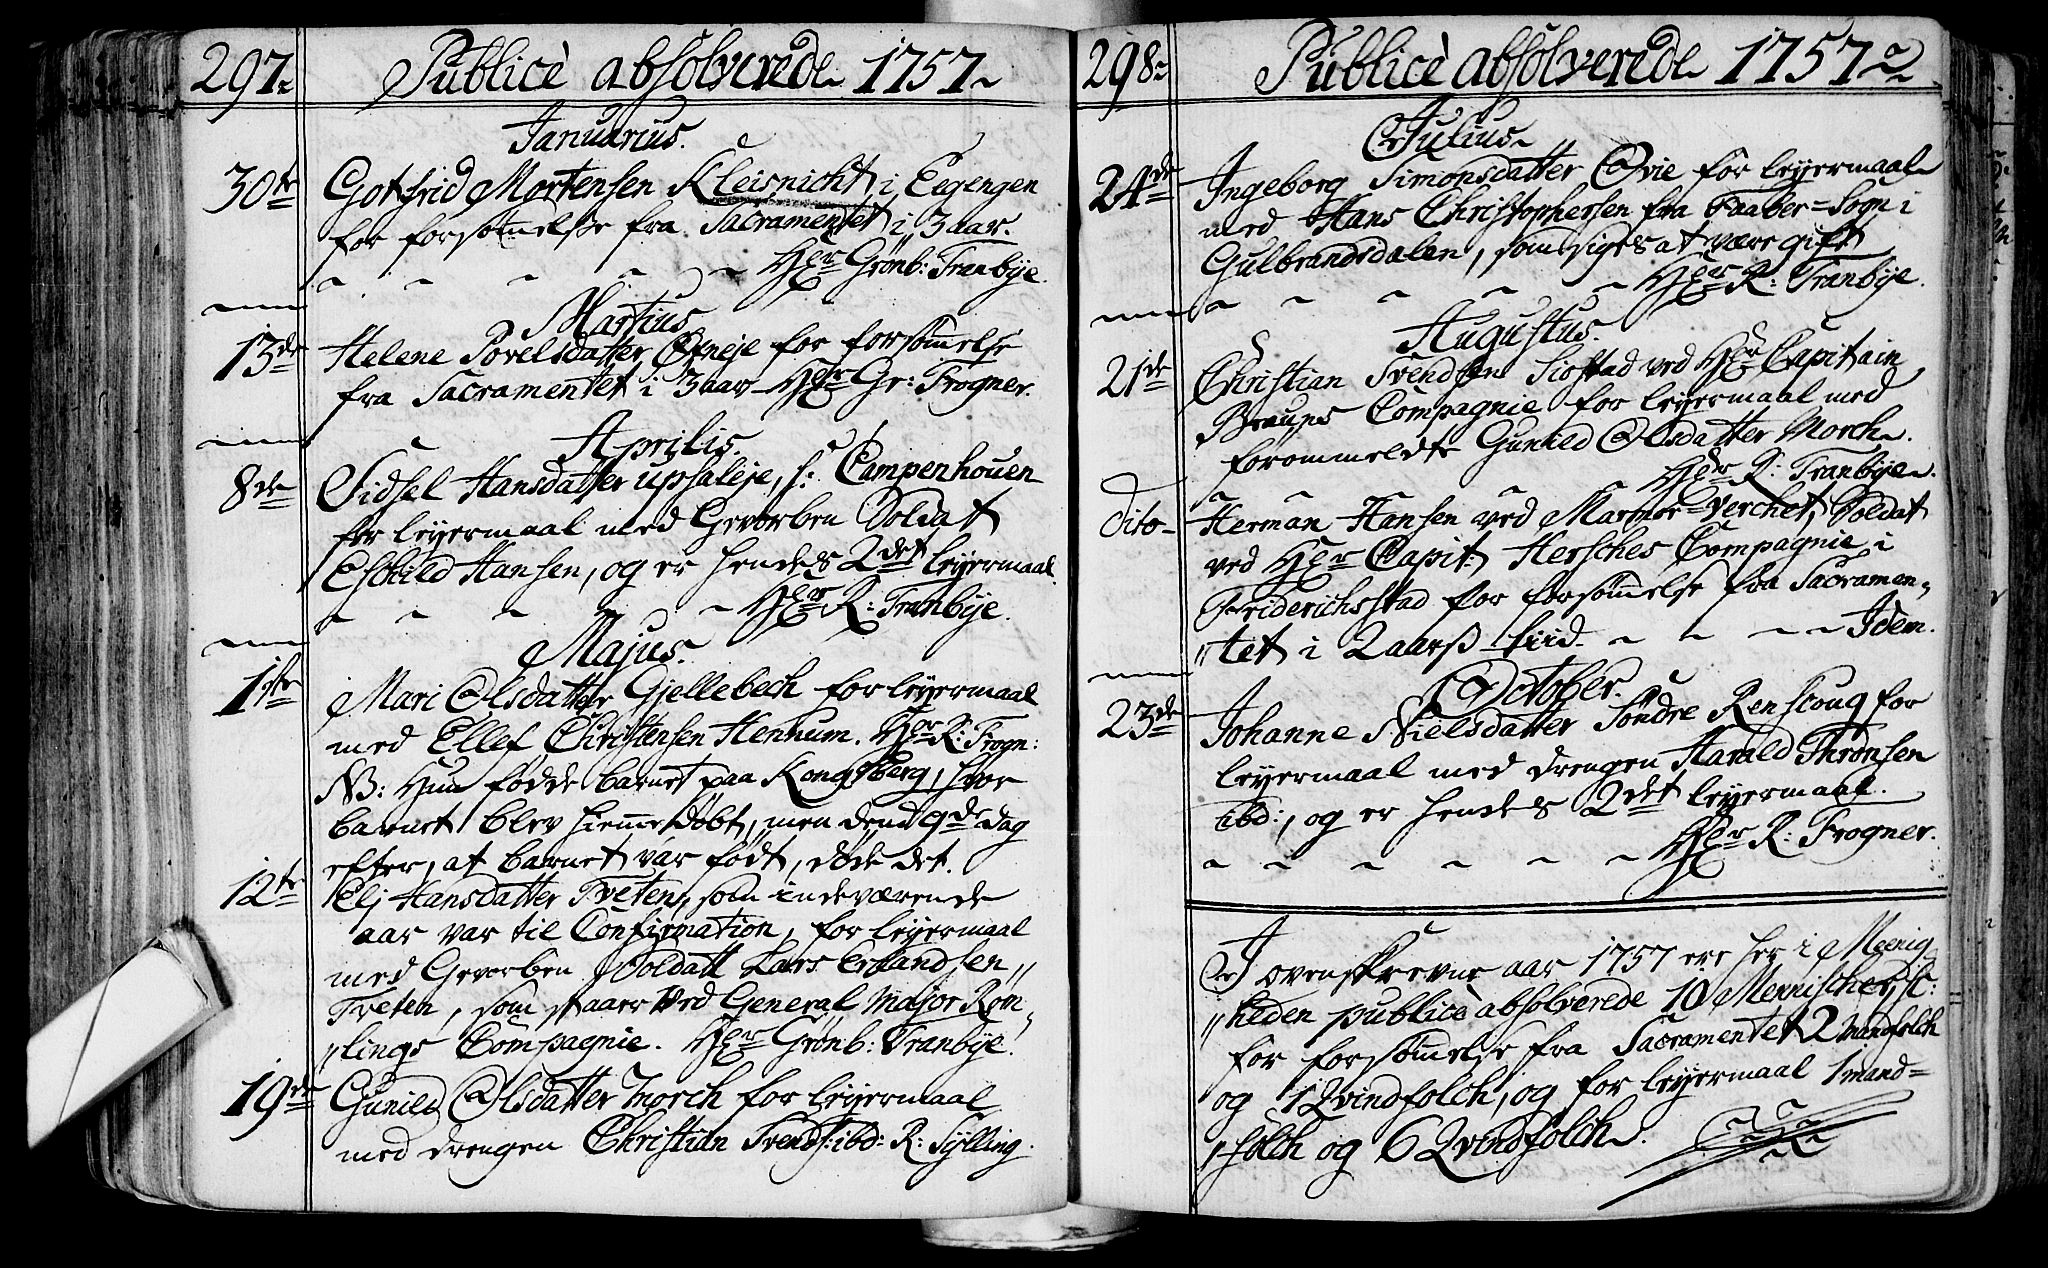 297.
Publicè absolverede 1757
Januarius.
30te Gotfrid Mortensen Kleisnicht i Eegengen
for forsømelse fra Sacramentet i 3 aar.
Hr Grönb: Tranbÿe.
Martius
13de Helene Povelsdatter Øfneje for forsømelse
fra Sacramentet i 3 aar Hr Gr: Frogner.
Aprilis.
8de Sidsel Hansdatter upsaleje, f: Campenhouen
for leyermaal med Gevorben Soldat
Eskild Hansen, og er hendes 2det leyermaal
Hr R: Tranbÿe.
Majus.
1ste Mari Olsdatter Gjellebech for leyermaal
med Ellef Christensen Hennum. Hr R: Frogn:
NB: Hun fødde barnet paa Kongsberg, hvor
barnet blev hiemme døbt, men dend 9de dag
efter, at barnet var født, døde det.
12te Elj Hansdatter Tveten, som indeværende
aar var til Confirmation, for leyermaal
med Gevorben Soldatt Lars Erlandsen
Tveten, som staaer ved General Major Röm„
„lings Compagnie. Hr Grönb: Tranbÿe.
19de Gunild Olsdatter Morch for leyermaal
med drengen Christian Svends: ibd: R: Sÿlling.
298.
Publicè absolverede 1757
Julius
24de Ingeborg Simonsdatter Ovie for leyermaal
med Hans Christophersen fra Faaber=Sogn i
Gulbrandsdalen, som siges at være gift
Hr R: Tranbÿe.
Augustus.
21de Christian Svendsen Siostad ved Hr Capitain
Bruuns Compagnie for leyermaal med
forommeldte Gunild Olsdatter Morch.
Hr R: Tranbÿe.
Dito Herman Hansen ved Marmor=Verchet, Soldat
ved Hr Capit: Hersches Compagnie i
Friderichsstad for forsømelse fra Sacramen„
„tet i 2 aars tiid. Idem.
October.
23de Johanne Nielsdatter Søndre Renscoug for
leyermaal med drengen Harald Thrönsen
ibd:, og er hendes 2det leyermaal.
Hr R: Frogner.
I ovenskrevne aar 1757 ere her i Meenig
„heden publicè absolverede 10 Mennischer, sc:
for forsømelse fra Sacramentet 2 Mandfolch
og 1 Qvindfolch, og for leyermaal 1 mand=
„folch og 6 Qvindfolch.